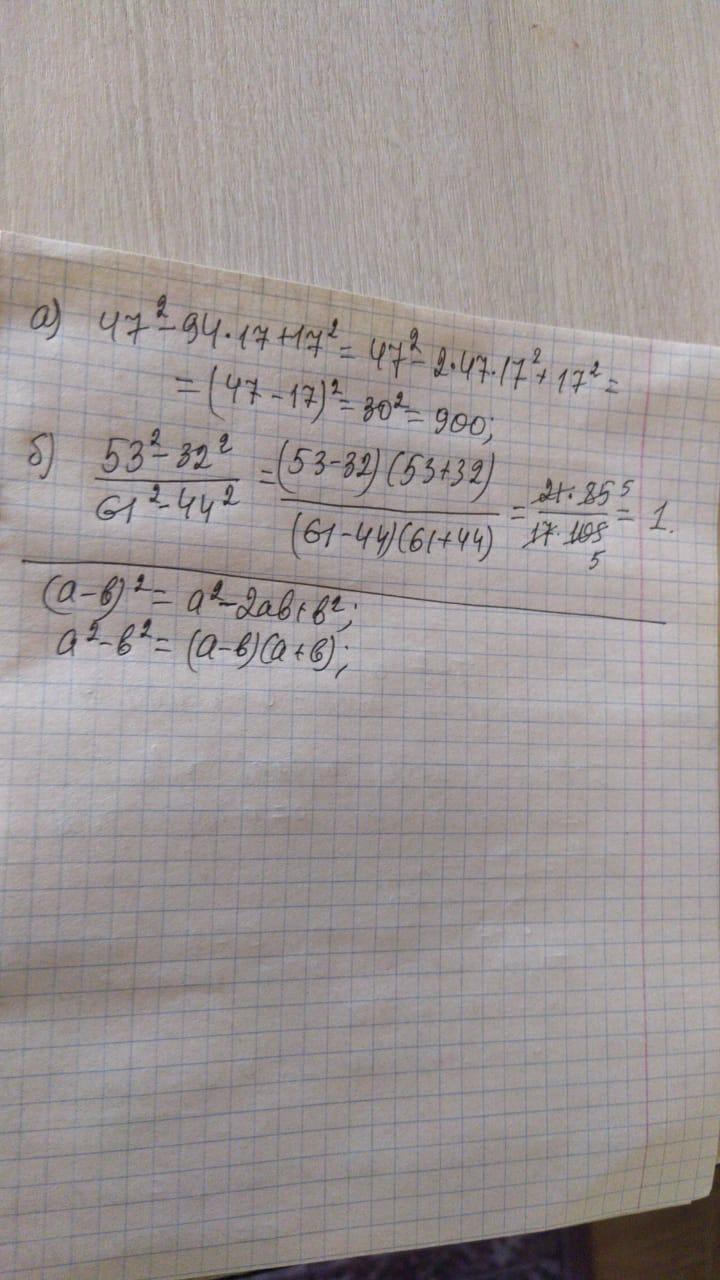 а) 47² - 94·17+17² = 47² - 2·47·17² + 17² =
= (47-17)² = 30² = 900;
б) (53² - 32²)/(61² - 44²) = ((53-32)(53+32))/((61-44)(61+44)) = (21·85 5)/(17·105 5) = 1.
(a-в)² = a² - 2aв + в²;
a² - в² = (a-в)(a+в);